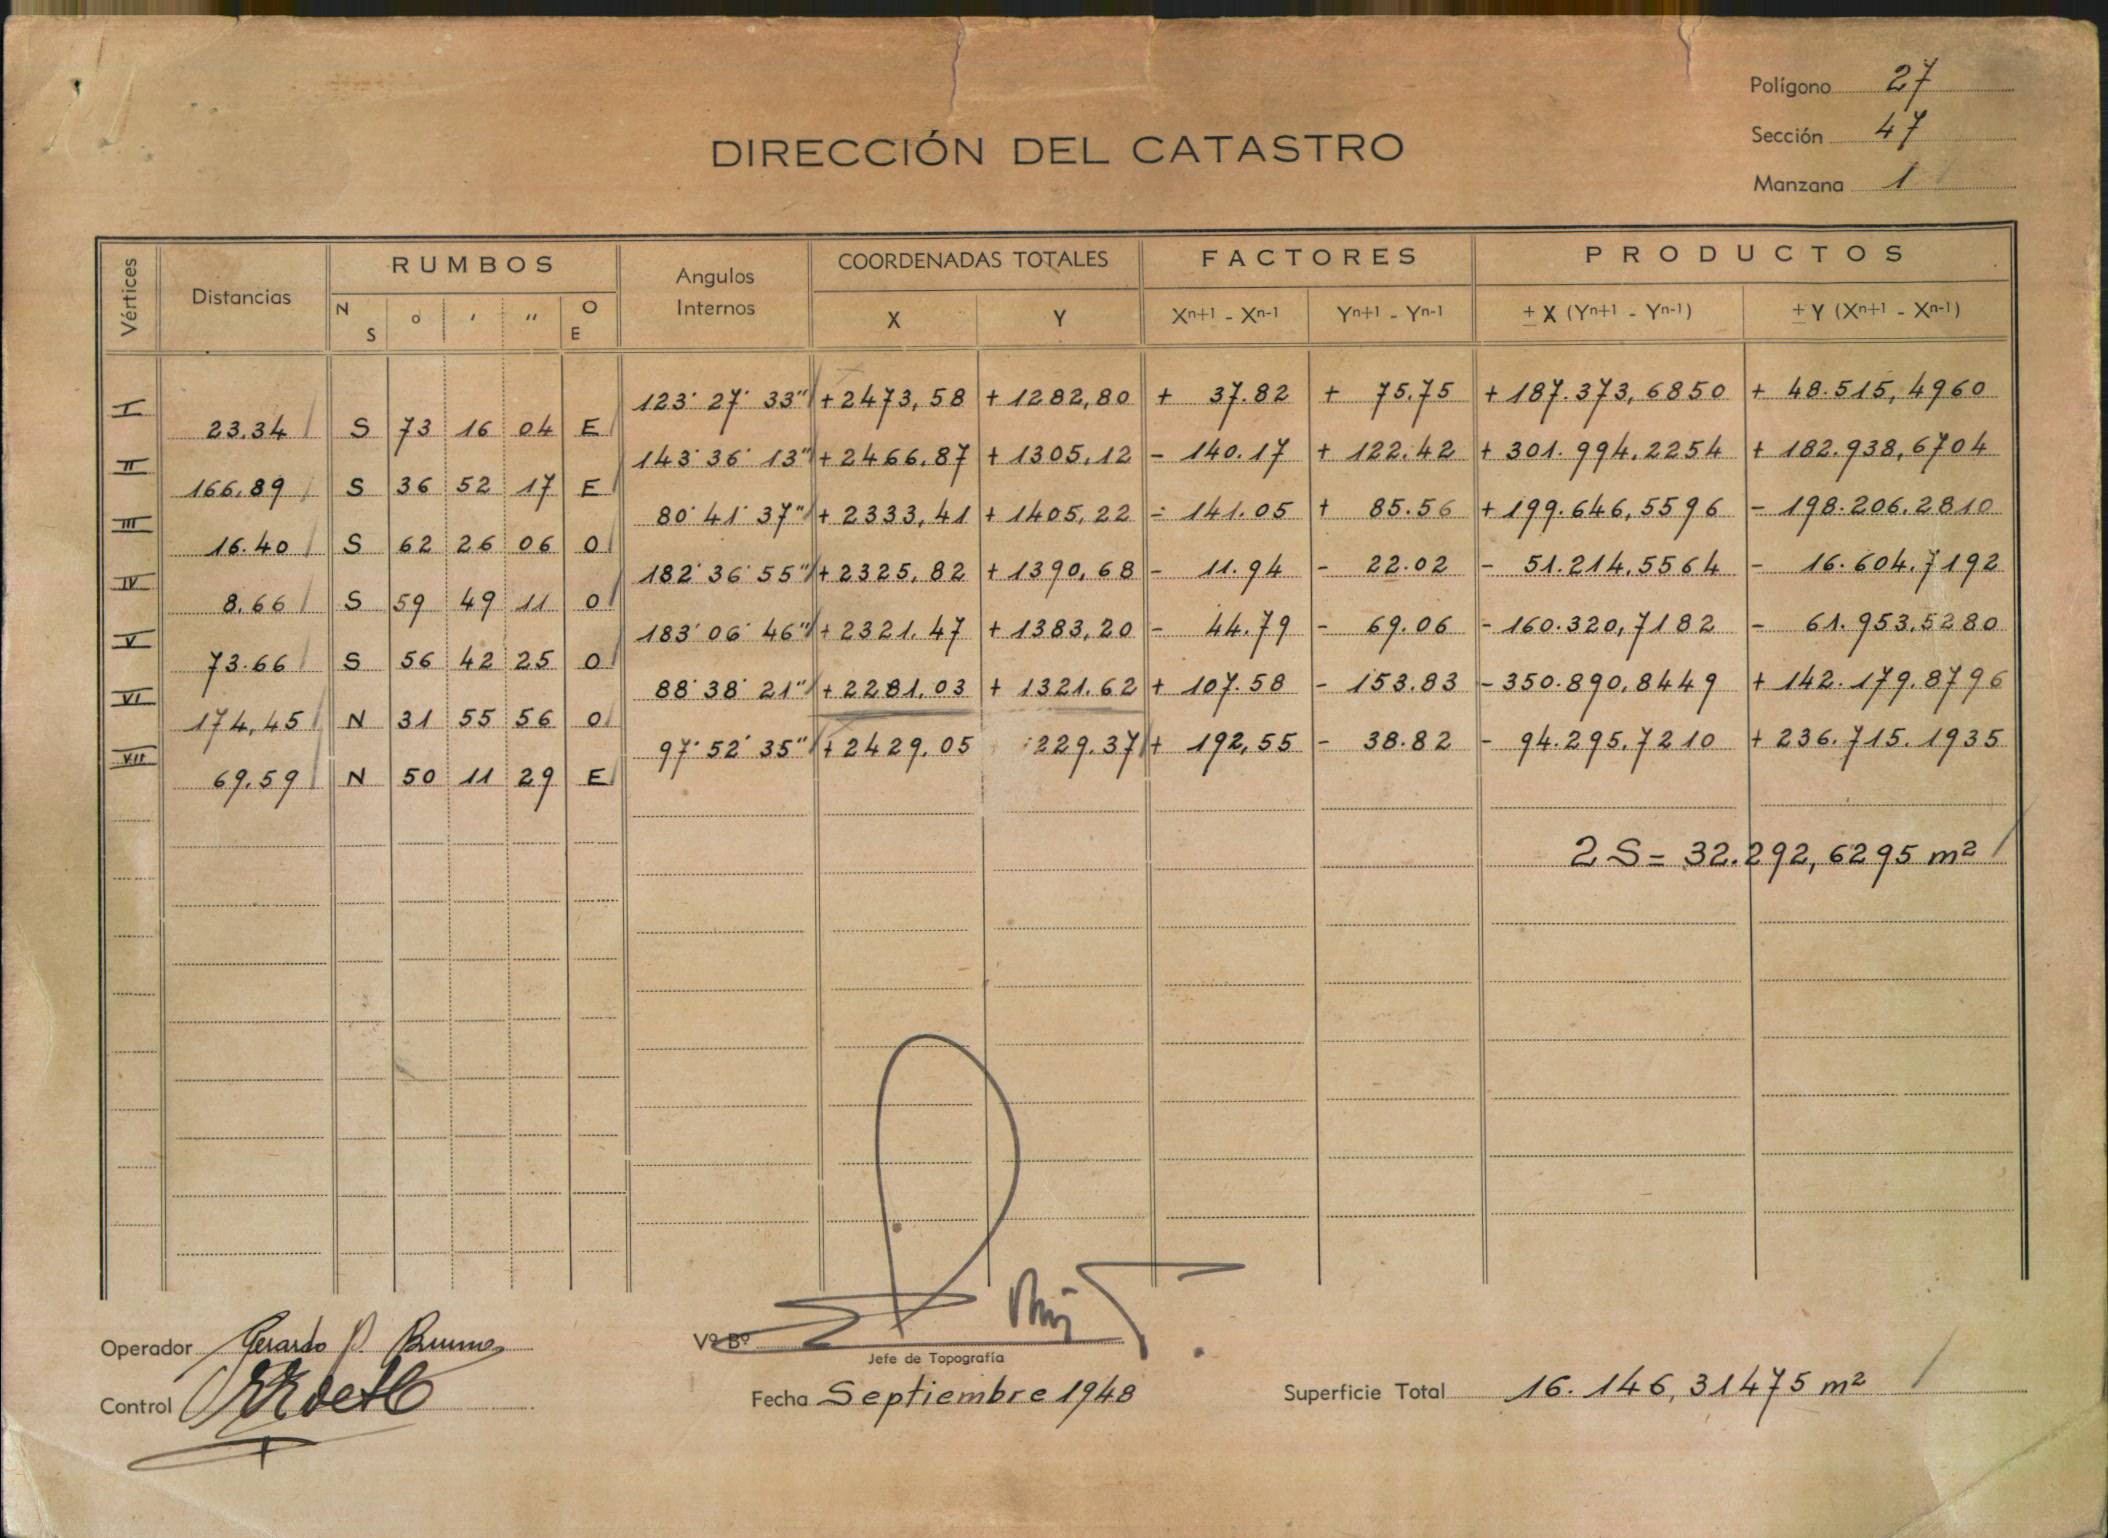 Polígono 27
Sección 47
Manzana 1
DIRECCIÓN DEL CATASTRO
Vértices Distancias RUMBOS Angulos Internos COORDENADAS TOTALES FACTORES PRODUCTOS
N S o ' '' O E X Y Xn+1 - Xn-1 Yn+1 - Yn-1 ± X (Yn+1 - Yn-1) ± Y (Xn+1 - Xn-1)
I 123° 27' 33" +2473,58 +1282,80 + 37.82 + 75.75 +187.373,6850 + 48.515,4960
23.34 S 73 16 04 E
II 143° 36' 13" +2466,87 +1305,12 - 140.17 + 122.42 +301.994.2254 + 182.938,6704
166.89 S 36 52 17 E
III 80° 41' 37" +2333,41 +1405,22 - 141.05 + 85.56 +199.646,5596 - 198.206.2810
16.40 S 62 26 06 O
IV 182° 36' 55" +2325,82 +1390,68 - 11.94 - 22.02 - 51.214,5564 - 16.604.7192
8.66 S 59 49 11 O
V 183° 06' 46" +2321.47 +1383,20 - 44.79 - 69.06 -160.320,7182 - 61.953,5280
73.66 S 56 42 25 O
VI 88° 38' 21" +2281,03 + 1321.62 + 107.58 - 153.83 -350.890,8449 + 142.179.8796
174,45 N 31 55 56 O
VII 97° 52' 35" +2429.05 229.37 + 192,55 - 38.82 - 94.295,7210 + 236.715.1935
69.59 N 50 11 29 E
2 S = 32.292,6295 m²
Operador Gerardo
Control
Vº Bº
Jefe de Topografía
Fecha Septiembre 1948
Superficie Total 16.146,31475 m²